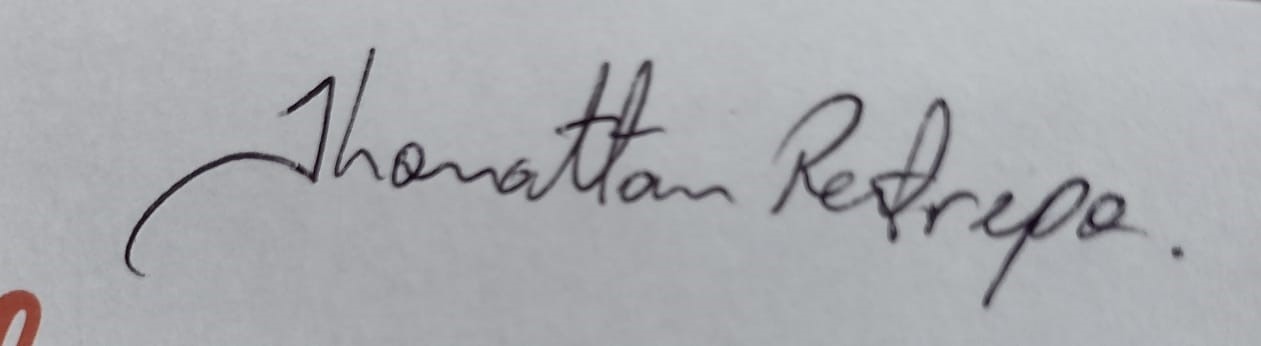 Jhonattan Restrepo.